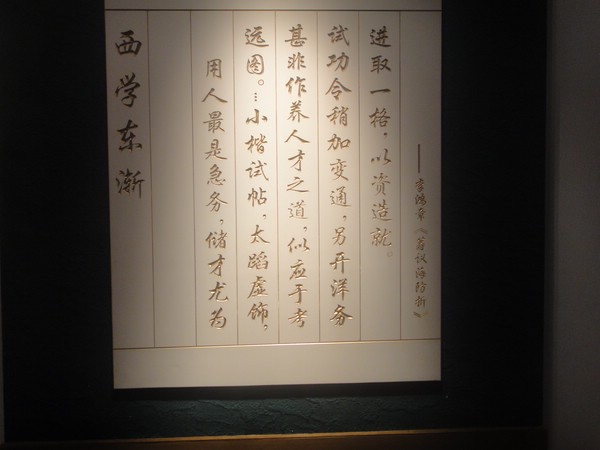 西学东渐
用人最是急务，储才尤为
远图。…小楷试帖，太蹈虚饰，
甚非作养人才之道，似应于考
试功令稍加变通，另开洋务
进取一格，以资造就。
——李鸿章《筹议海防折》